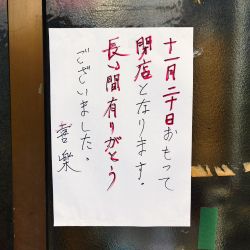 十一月二十日おもって
閉店となります。
長い間有りがとう
ございました。
喜楽